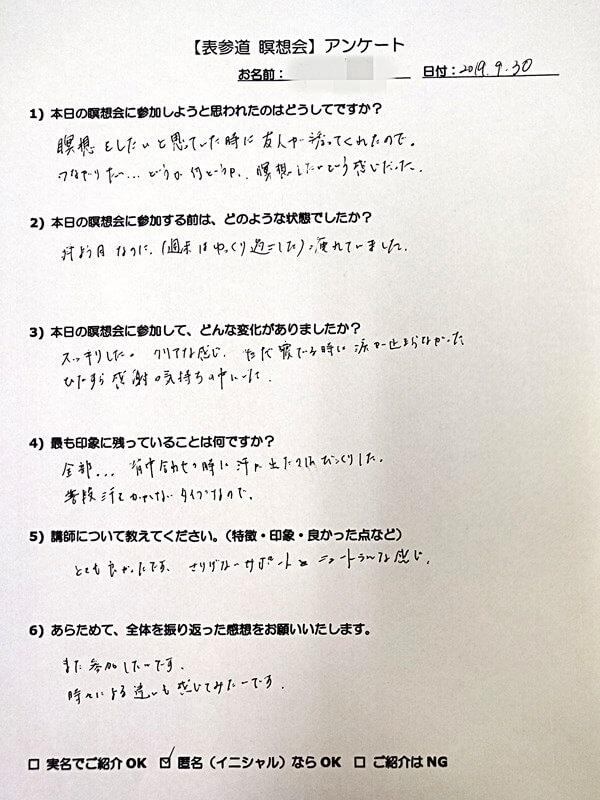 【表参道 瞑想会】アンケート
お名前： 日付：2019.9.30
1）本日の瞑想会に参加しようと思われたのはどうしてですか？
瞑想をしたいと思っていた時に友人が誘ってくれたので。
どうか 瞑想したいという感じだった。
2）本日の瞑想会に参加する前は、どのような状態でしたか？
月なのに、（週末はゆっくり過ごした）疲れていました。
3）本日の瞑想会に参加して、どんな変化がありましたか？
スッキリした。クリアな感じ。 寝てる時に涙が止まらなかった
ひたすら感謝の気持ちの中にいた。
4）最も印象に残っていることは何ですか？
全部... 背中合わせの時に汗が出たのはびっくりした。
普段汗をかかないタイプなので。
5）講師について教えてください。（特徴・印象・良かった点など）
とても良かったです。さりげないサポートとニュートラルな感じ。
6）あらためて、全体を振り返った感想をお願いいたします。
また参加したいです。
時々による違いも感じてみたいです。
□ 実名でご紹介 OK ☑ 匿名（イニシャル）なら OK □ ご紹介は NG